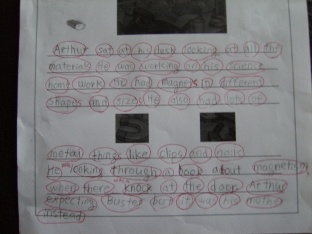 Arthur sat at his desk looking at all the
materials He was working on his science
home work He had magnets in different
shapes and sizes He also had lots of
metal things like clips and nails
He was looking through a book about magnetism
when there was knock at the door Arthur
expecting Buster but it was his mother
instead